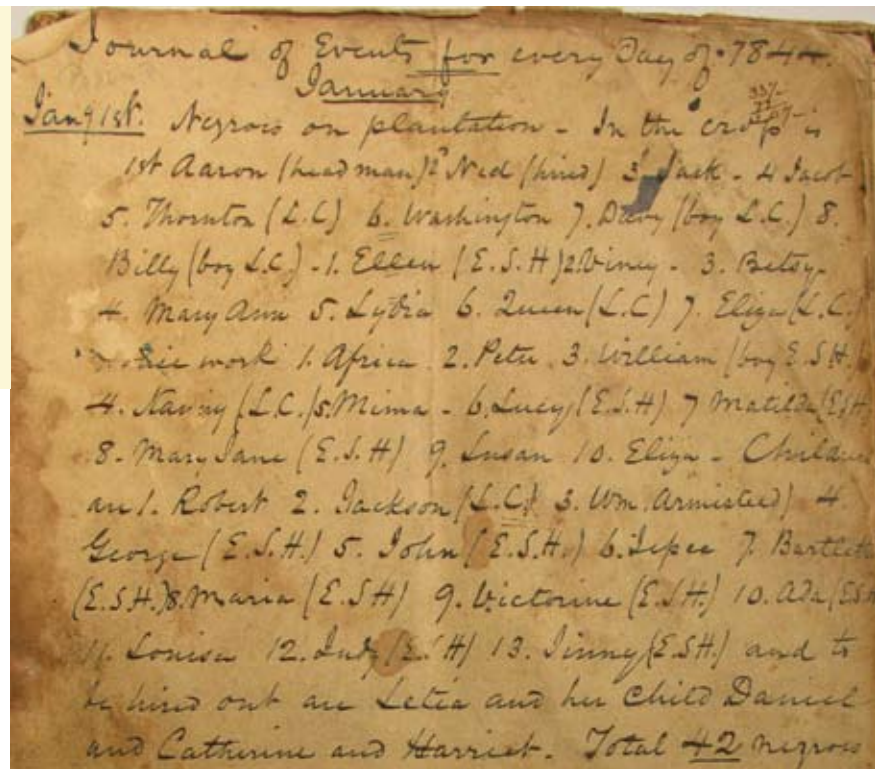 Journal of Events for every Day of 1844.
January
Jany 1st. Negroes on plantation - In the crop is
1st Aaron (head man) 2d Ned (hired) 3 Jack - 4 Jacob
5. Thornton (L.C) 6. Washington 7. Davy (boy L.C.) 8.
Billy (boy L.C.) - 1. Ellen (E.S.H) 2 Viney - 3. Betsy -
4. Mary Ann 5. Lydia 6. Queen (L.C) 7. Eliza (L.C.)
work 1. Africa 2. Peter 3. William (boy E.S.H.)
4. Nanny (L.C.) 5. Mima - 6. Lucy (E.S.H) 7 Matilda (E.S.H
8. Mary Jane (E.S.H) 9. Susan 10. Eliza - Children
are 1. Robert 2. Jackson (L.C.) 3. Wm. Armistead) 4.
George (E.S.H.) 5. John (E.S.H.) 6. 7. Bartlett
(E.S.H.) 8. Maria (E.S.H) 9. Victorine (E.S.H.) 10. Ada (E.S.H
11. Louisa 12. Judy (E.S.H) 13. Jinny (E.S.H.) and to
be hired out are Letia and her child Daniel
and Catherine and Harriet. Total 42 negroes